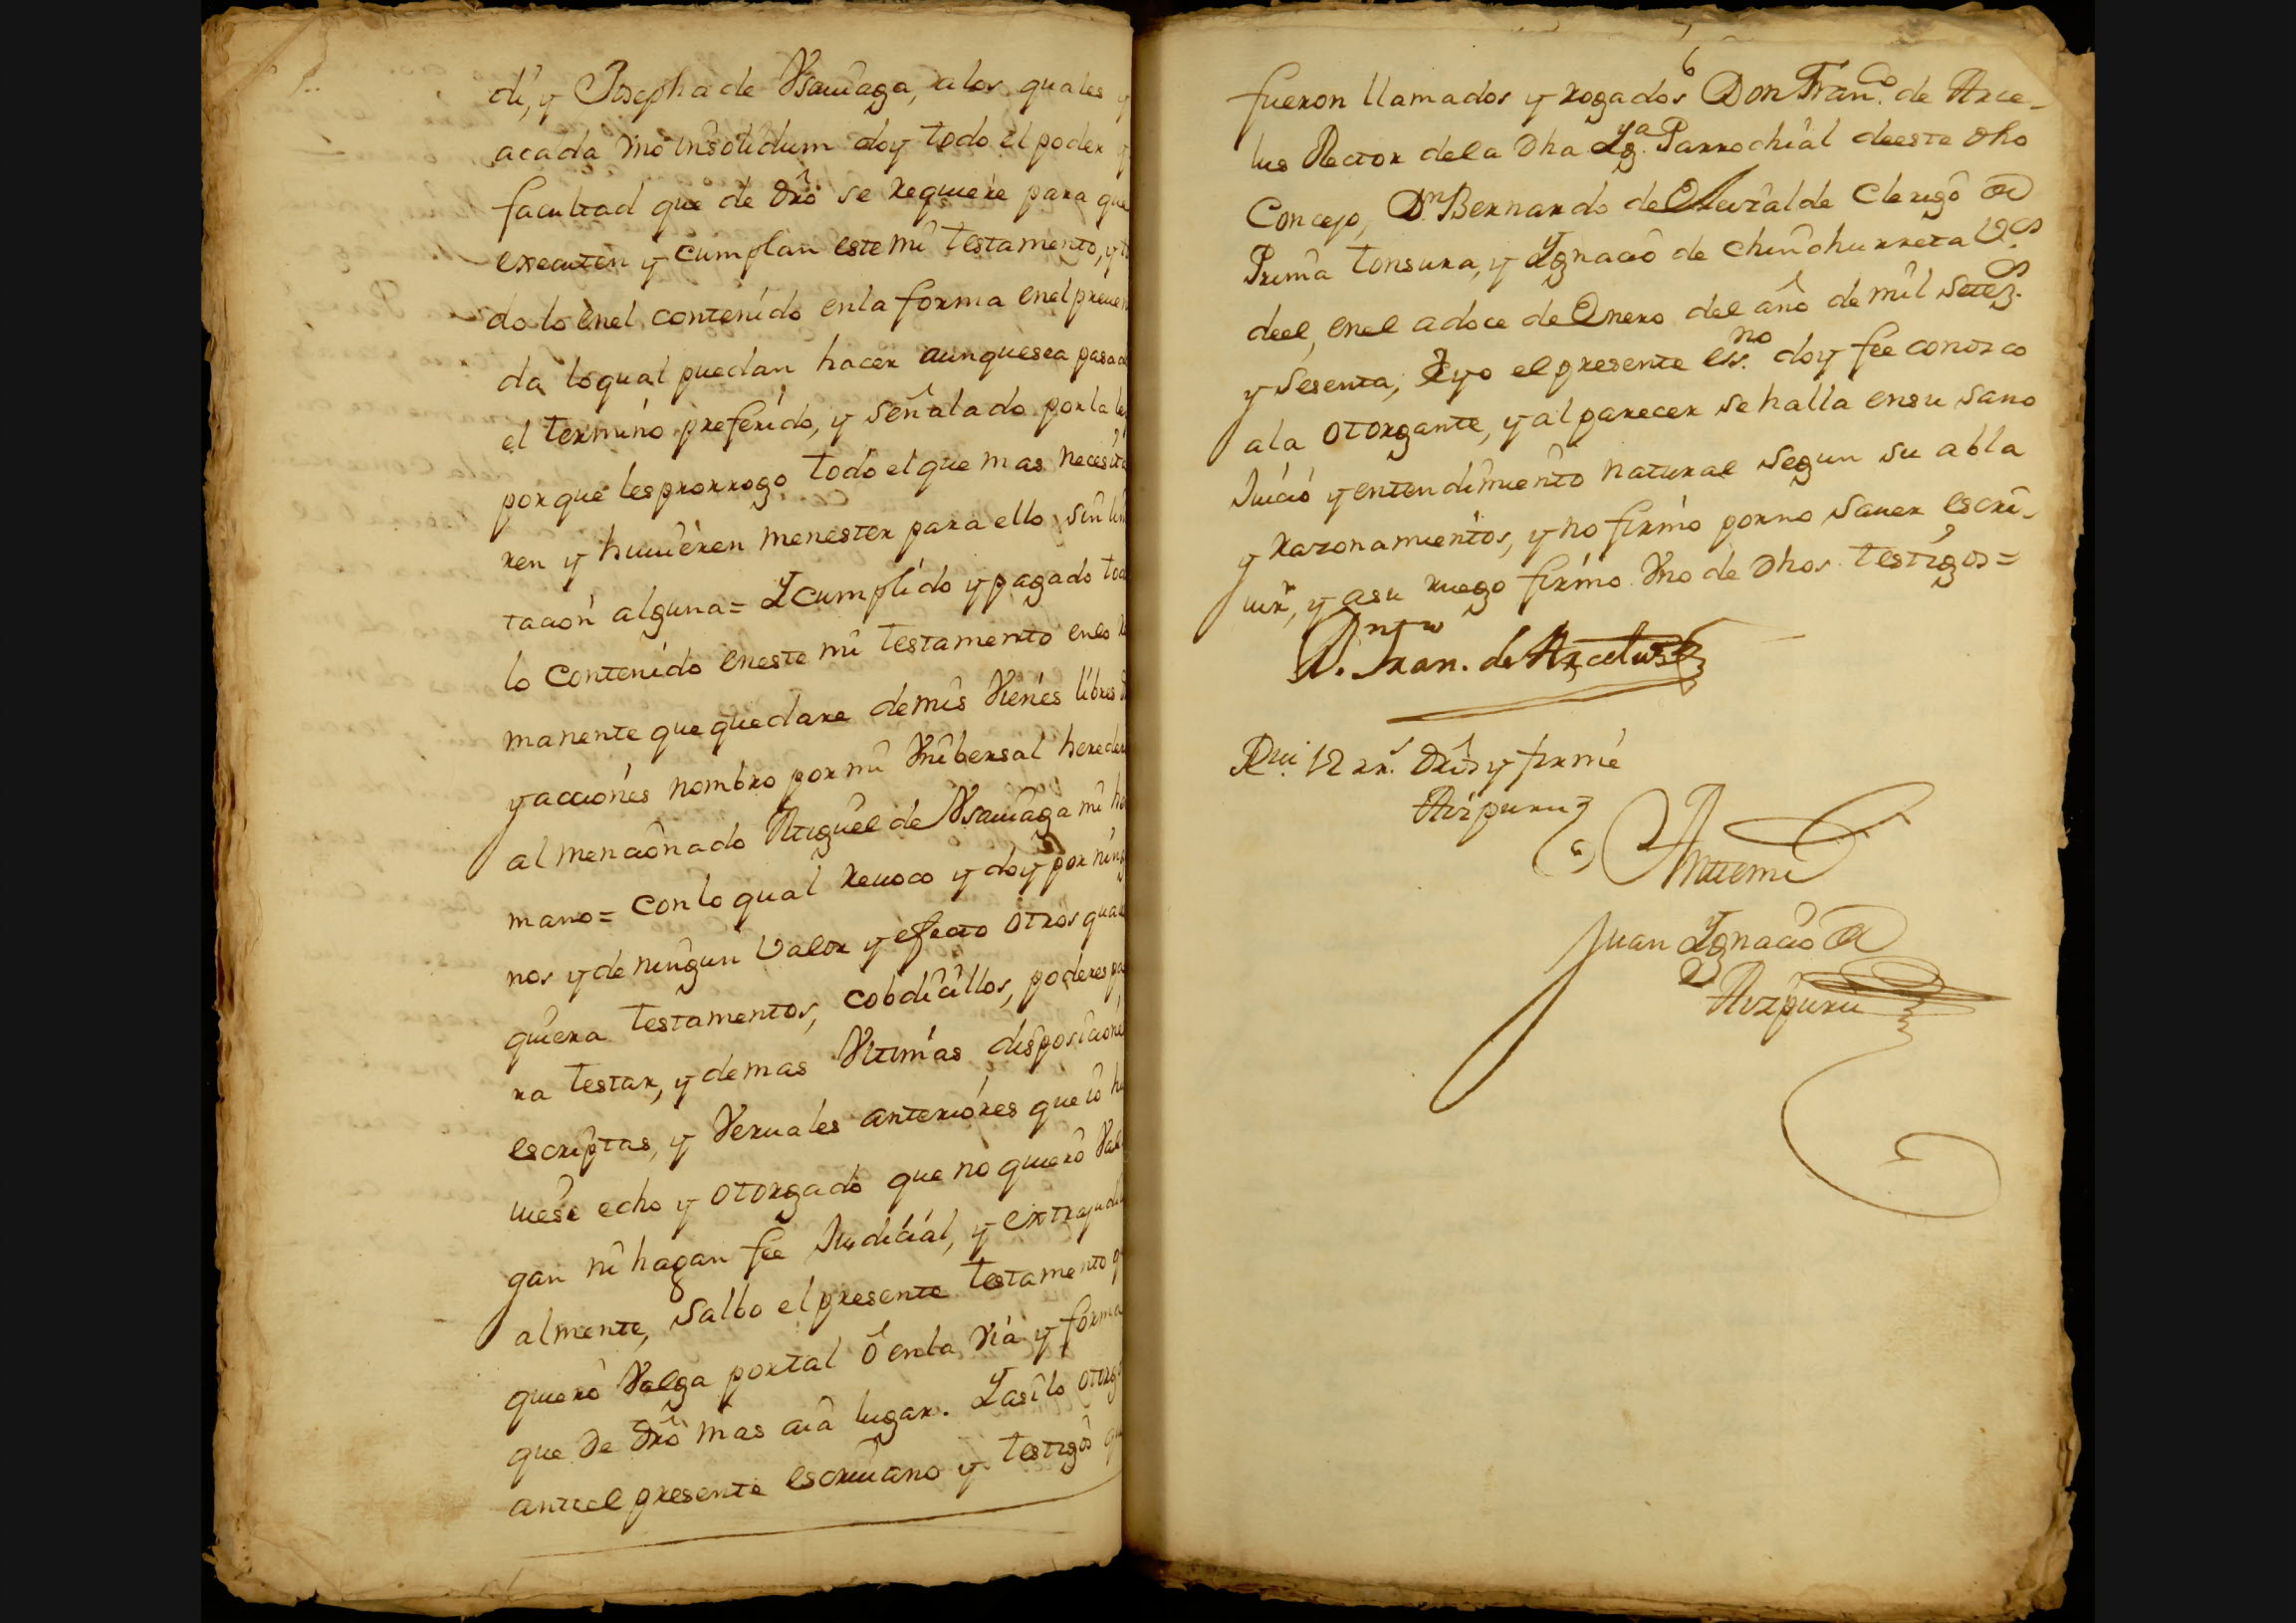 di, y Josepha de Vsauiaga, a los quales y
acada vno insolidum doy todo el poder y
facultad que de dro se requiere para que
executen y cumplan este mi testamento, y to
do lo enel contenido enla forma enel preueni
da loqual puedan hacer aunquesea pasado
el termino preferido, y señalado porla ley
porque les prorrogo todo el que mas necesita
ren y huuieren menester para ello sin limi
tacion alguna = Y cumplido y pagado todo
lo contenido eneste mi testamento enel re
manente que quedare demis vienes libres
y acciones nombro por mi Vnibersal heredero
al mencionado Miguel de Vsauiaga mi her
mano = con lo qual reuoco y doy por ningu
nos y de ningun valor y efecto otros quales
quiera testamentos, cobdicillos, poderes pa
ra testar, y demas vltimas disposiciones
escriptas, y veruales anteriores que io hu
uiese echo y otorgado que no quiero val
gan ni hagan fee Judicial, y extrajudici
almente, salbo el presente testamento q
quiero valga portal ô enla via y forma
que de dro mas aia lugar. Y asi lo otorgo
anteel presente escriuano y testigos que
6
fueron llamados y rogados Don Fran.co de Arce-
lus Rector dela dha Yg.a Parrochial deeste dho
Concejo, Dn Bernardo de Oleizalde Clerigo de
Prima tonsura, y Ygnacio de Chinchurreta V.s
deel, enel adoce de Enero del año de mil setez.s
y sesenta, E yo el presente ess.no doy fee conozco
ala otorgante, y al parecer se halla ensu sano
Juicio y entendimiento natural segun su abla
y razonamientos, y no firmo porno sauer escri-
uir, y asu ruego firmo vno de dhos testigos =
D. Fran. de Arcelus
12 rr.s dros y firmé
Aizpuru
Antemi
Juan Ygnacio de
Aizpuru